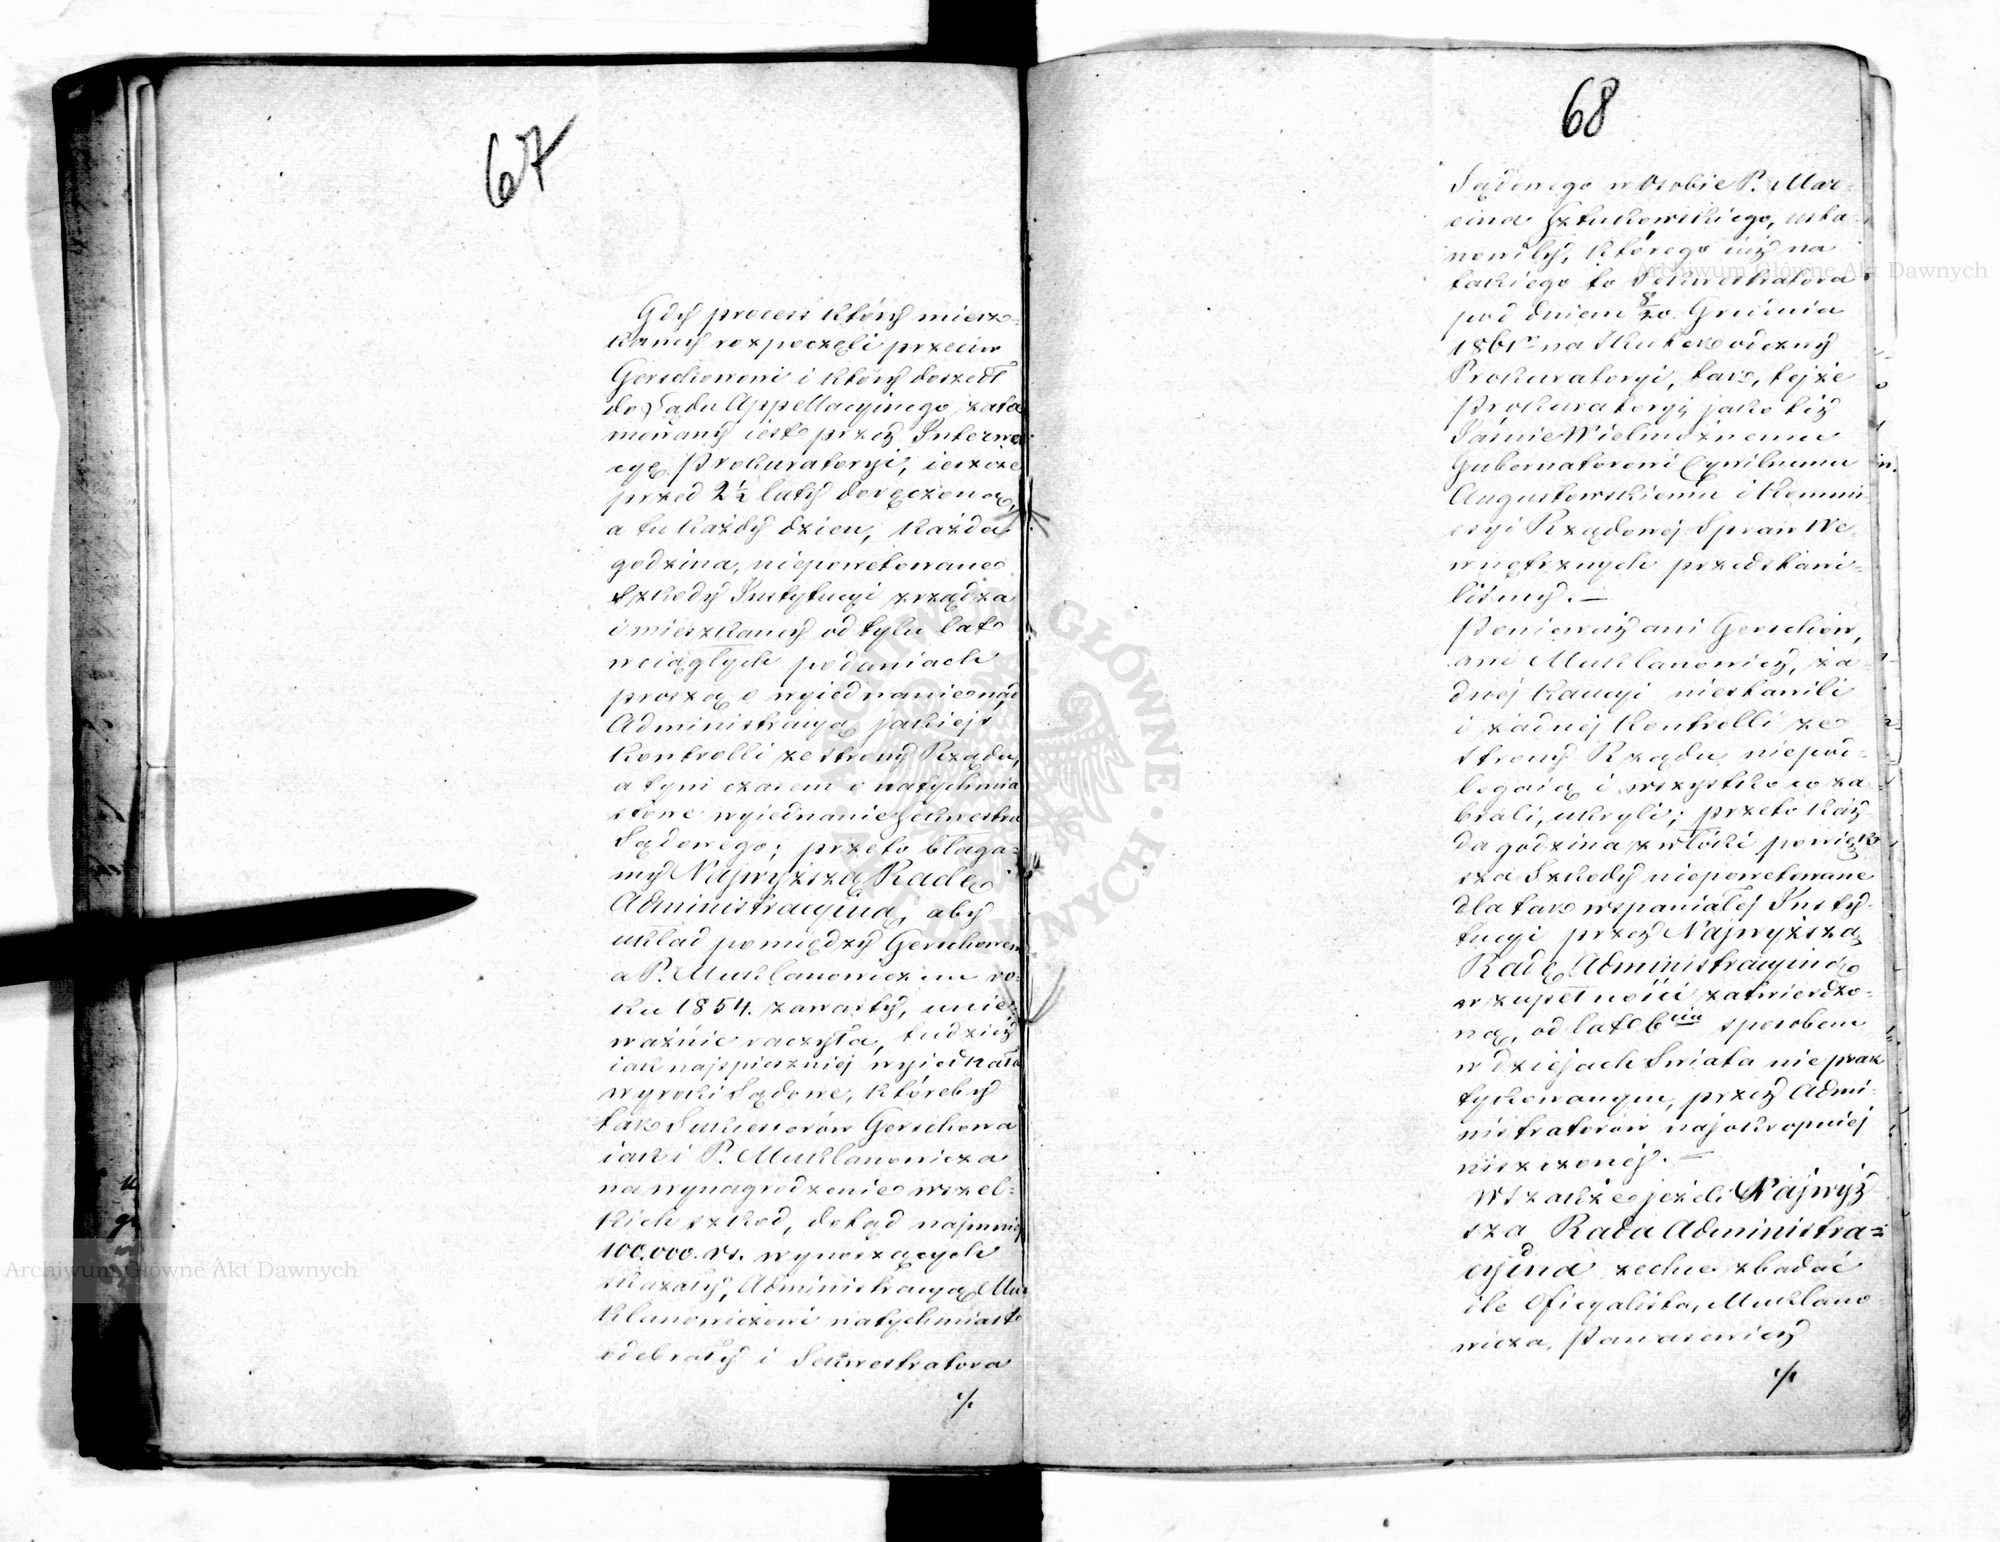 67
Gdy process który miesz=
kańcy rozpoczęli przeciw
Gerschonowi i który doszedł
do Sądu Appellacyjnego zata
mowany iest przez Interwen
cyę Prokuratoryi, ieszcze
przed 2½ laty doręczoną,
a tu każdy dzień, każda
godzina, niepowetowane
szkody Instytucyi zrządza
i mieszkańcy od tylu lat
wciągłych podaniach
proszą o wyiednanie nad
Administracyą jakiejś
kontrolli ze strony Rządu,
a tym czasem o natychmia
stowe wyiednanie Sekwestru
Sądowego; przeto błaga=
my Najwyższą Radę
Administracyjną, aby
układ pomiędzy Gerschonem
a P. Mucklanowiczem ro=
ku 1854. zawarty, unie=
ważnić raczyła, tudzież
iak najspieszniej wyjednała
wyroki Sądowe, któreby
tak Sukcessorów Gerschona
iak i P. Mucklanowicza
na wynagrodzenie wszel=
kich szkod, dotąd najmniej
100.000. rs. wynoszących
skazały, Administracyą Mu=
klanowiczowi natychmiast
odebrały i Sekwestratora
./.
68
Sądowego w Osobie P. Mar=
cina Sztukowskiego, usta=
nowiły, którego iuż na
takiego to Sekwestratora
pod dniem 8/20 Grudnia
1861 r. na Skutek odezwy
Prokuratoryi, tak, tejże
Prokuratoryi jako też
Jaśnie Wielmożnemu
Gubernatorowi Cywilnemu
Augustowskiemu i Kommis=
syi Rządowej Spraw We=
wnętrznych przedstawi=
liśmy. —
Ponieważ ani Gerschon,
ani Mucklanowicz, ża=
dnej kaucyi niestawili
i żadnej kontrolli ze
strony Rządu niepod=
legaią i wszystko co za=
brali, ukryli; przeto każ=
da godzina zwłoki powięk
sza Szkody niepowetowane
dla tak wspaniałej Insty=
tucyi przez Najwyższą
Radę Administracyjną
w zupełności zatwierdzo=
ną, od lat 6ciu sposobem
w dziejach Świata nieprak
tykowanym, przez Admi=
nistratorów najokropniej
niszczonej. —
Wszakże jeżeli Najwyż
sza Rada Administra=
cyjna zechce zbadać
ile Oficyalista, Mucklano=
wicza,
./.
Archiwum Główne Akt Dawnych
Archiwum Główne Akt Dawnych